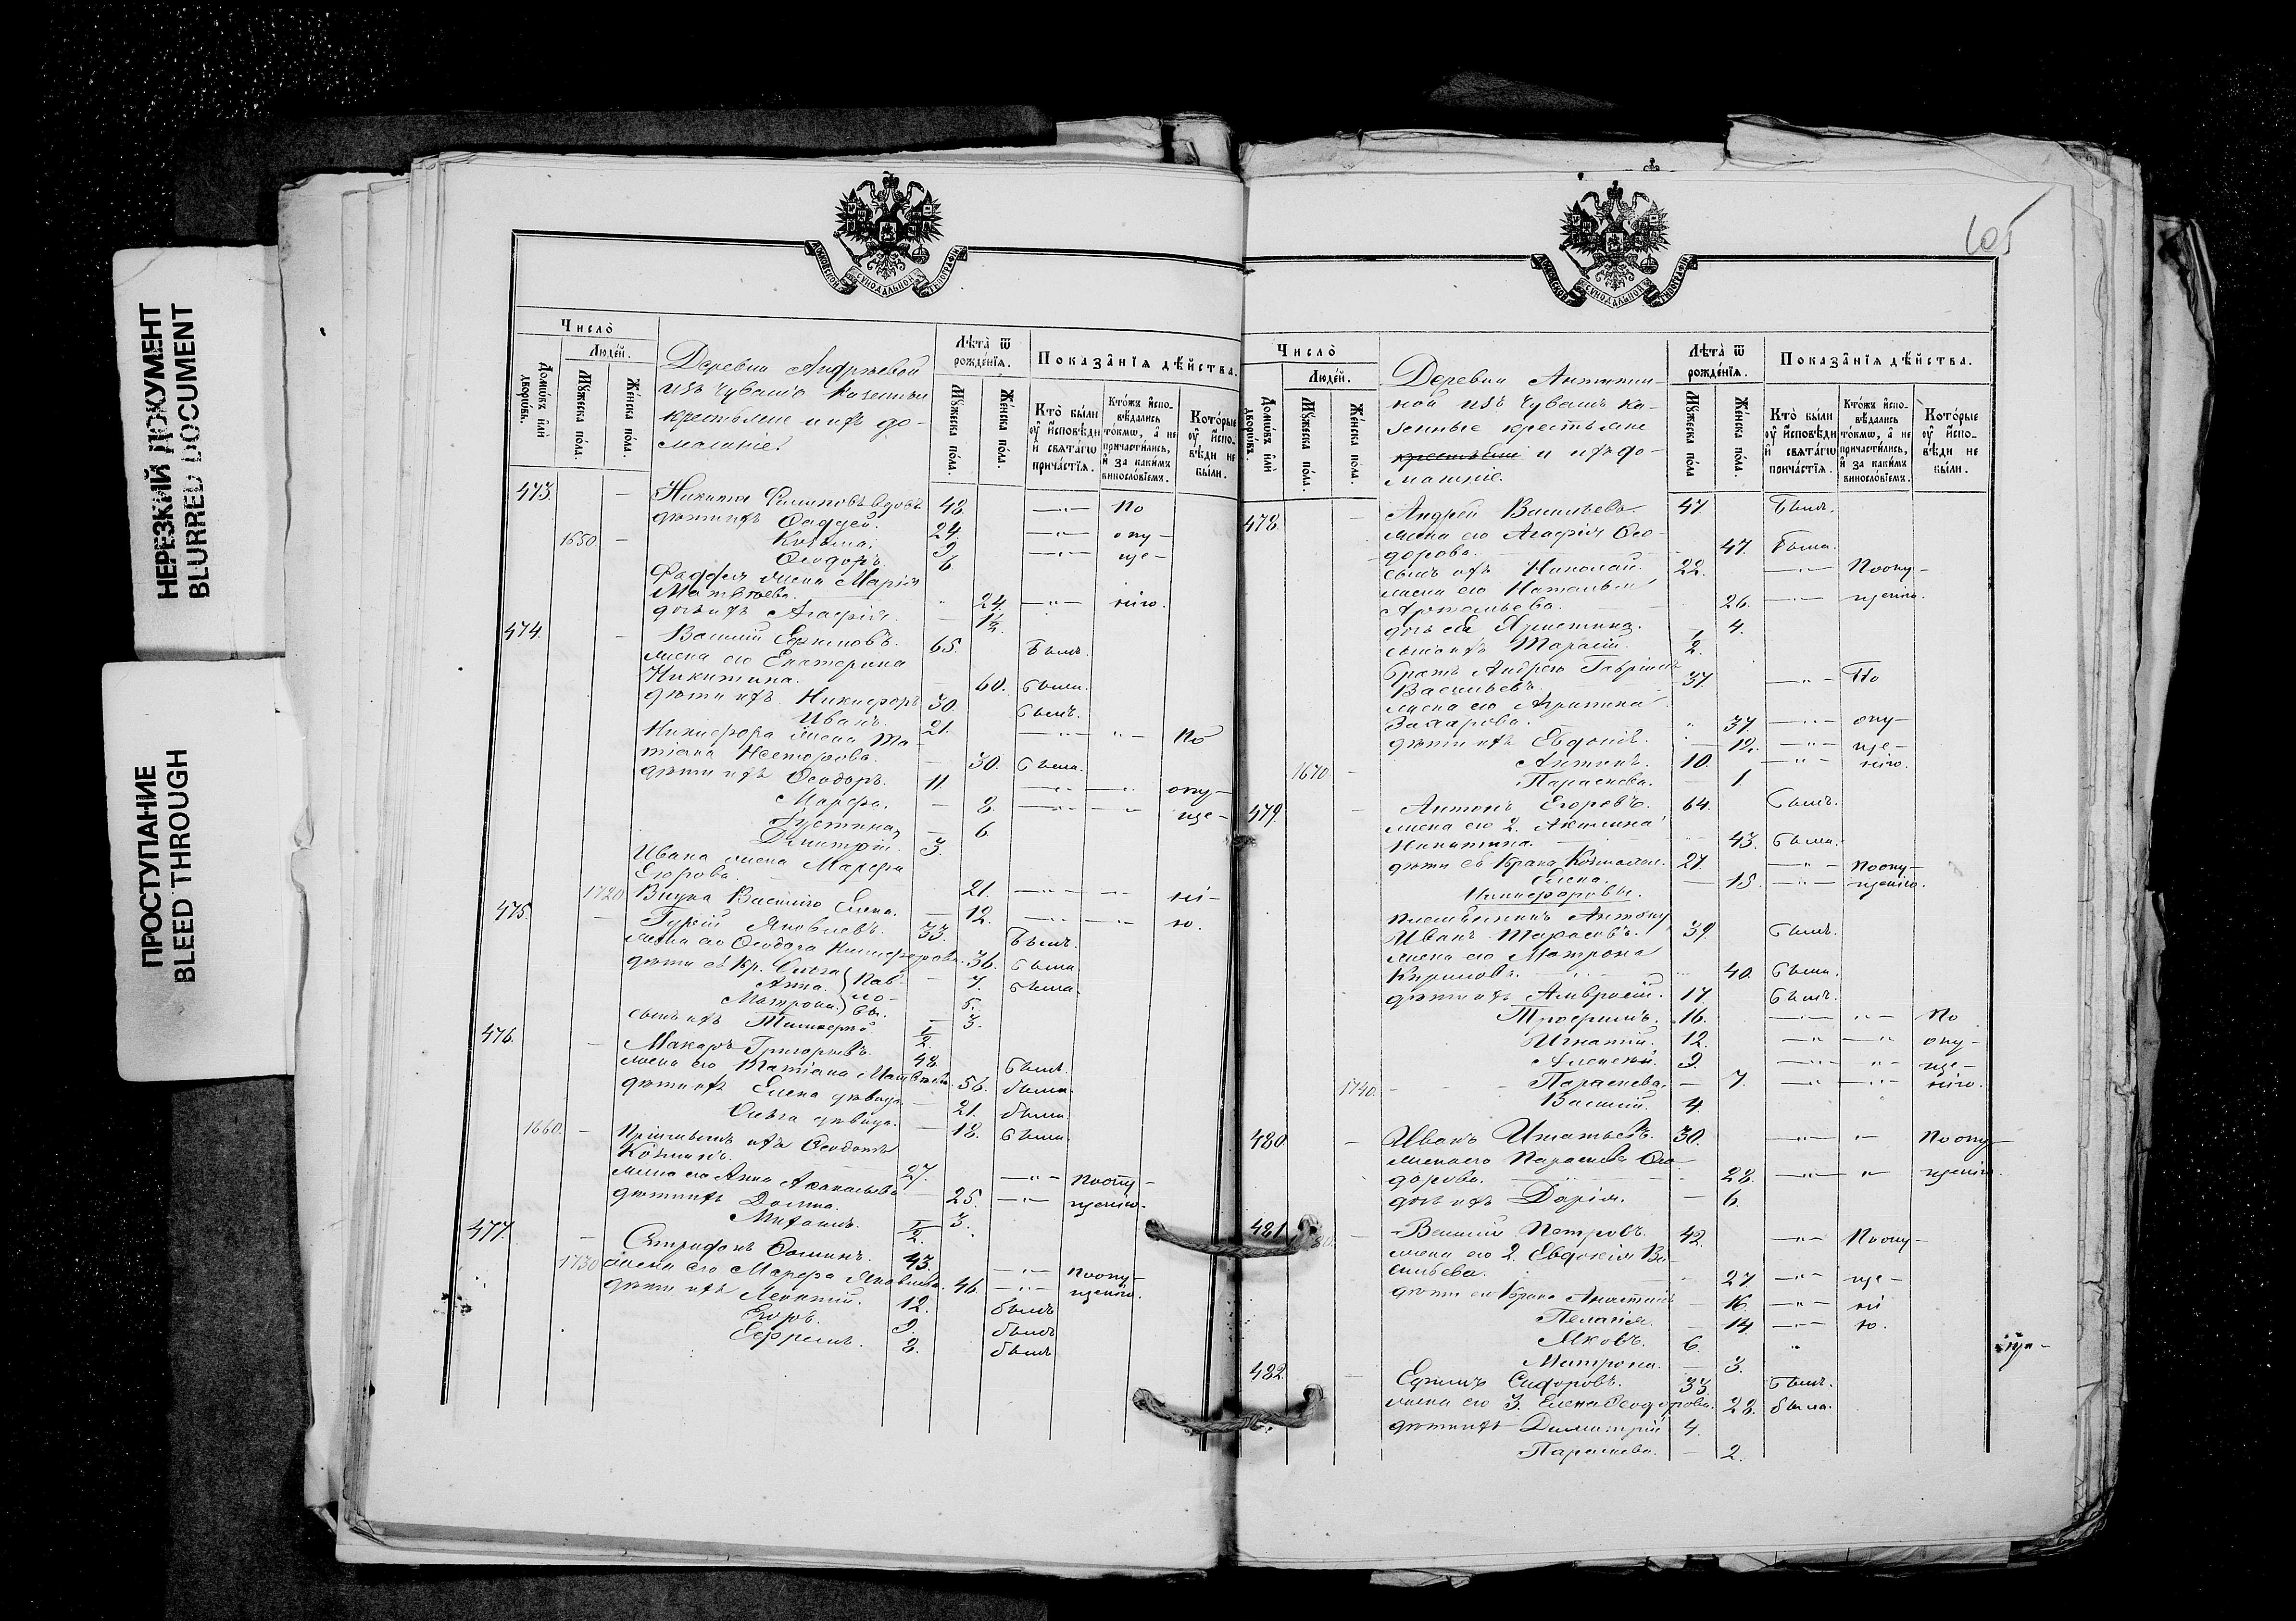 НЕРЕЗКИЙ ДОКУМЕНТ
BLURRED DOCUMENT
ПРОСТУПАНИЕ
BLEED THROUGH
МОСКОВСКОЙ СУНОДАЛЬНОЙ ТУПОГРАФІИ
Число̀
Людей.
Домѡ́въ и҆лѝ дворѡ́въ.
Мꙋ́жеска по́ла.
Же́нска по́ла.
Деревни
изъ Чувашъ Казенные
крестьяне и ихъ до-
машніе.
Лѣ́та ѿ рожде́нїѧ.
Мꙋ́жеска по́ла.
Же́нска по́ла.
Показа̑нїѧ дѣ́йства.
Кто̀ бы́ли оу҆ и҆́сповѣди и҆ свѧта́гѡ прича́стїѧ.
Кто́жъ и҆спо-вѣ́дались то́кмѡ, а҆ не причасти́лись, и҆ за каки́мъ винослѡ́вїемъ.
Кото́рые оу҆ и҆спо-вѣди не бы́ли.
473. Никита Филиповъ вдовъ 48. —"— По
дѣти ихъ Фаддей. 24. —"— опу-
1650 Козьма. 9. —"— ще-
Ѳеодоръ. 6.
Фаддея жена Марія
Матвѣева. 24. —"— нію.
дочь ихъ Агафія. 1/2.
474. Василій Ефимовъ. 65. Былъ.
жена его Екатерина
Никитина. 60. была.
дѣти ихъ Никифоръ 30. былъ.
Иванъ. 21. —"— "— По
Никифора жена Та-
тіана Несторова. 30. была.
дѣти ихъ Ѳеодоръ. 11. —"— опу-
Марфа. 8. —"— ще-
Іустина, 6
Димитрій. 3.
Ивана жена Марфа
Егорова. 21. —"— ні-
1720 Внука Василію Елена. 12. —"— ю.
475. Гурій Яковлевъ. 33. Былъ.
жена его Ѳеодора Никифорова. 36. была
дѣти ея 1 бр. Ольга 7. была.
Анна. 5.
Матрона. 3.
Павловы.
сынъ ихъ Тимофей. 1/2.
476. Макаръ Григорьевъ. 48. былъ.
жена его Татіана Матвѣева. 56. была.
дѣти ихъ Елена дѣвица. 21. была.
Ольга дѣвица. 18. была.
1660. Пріемышъ ихъ Ѳеодотъ
Козминъ. 27. —"— Поопу-
жена его Анна Аѳанасьева 25. —"— щенію.
дѣти ихъ 3.
1/2.
477. Ѳоминъ. 43. —"— Поопу-
1730 жена его Марфа Яковлева. 46. —"— щенію.
дѣти ихъ Леонтій. 12. былъ
Егоръ. 9. былъ
Ефремъ. 8. былъ
605
МОСКОВСКОЙ СУНОДАЛЬНОЙ ТУПОГРАФІИ
Число̀
Людей.
Домѡ́въ и҆лѝ дворѡ́въ.
Мꙋ́жеска по́ла.
Же́нска по́ла.
Деревни
изъ Чувашъ ка-
зенные крестьяне
крестьяне и ихъ до-
машніе.
Лѣ́та ѿ рожде́нїѧ.
Мꙋ́жеска по́ла
Же́нска по́ла.
Показа̑нїѧ дѣ́йства.
Кто̀ бы́ли оу҆ и҆́сповѣди и҆ свѧта́гѡ прича́стїѧ.
Кто́жъ и҆спо-вѣ́дались то́кмѡ, а҆ не причасти́лись, и҆ за каки́мъ винослѡ́вїемъ.
Кото́рые оу҆ и҆спо-вѣди не бы́ли.
478. Андрей Васильевъ 47. Былъ.
жена его Агафія Ѳео-
дорова. 47. Была.
сынъ ихъ Николай. 22. —"— Поопу-
жена его Наталья
26. —"— щенію.
дочь Христина. 4.
сынъ ихъ Тарасій. 1/2.
братъ Андрею Гавріилъ
Васильевъ. 37. —"— По
жена его Агрипина
Захарова. 37. —"— опу-
дѣти ихъ Евдокія. 12. —"— ще-
1670 Антонъ. 10. —"— нію.
Параскева. 1.
479. Антонъ Егоровъ. 64. былъ.
жена его 2. Акилина
Никитина. 43. была.
дѣти ея 1 брака 21. —"— Поопу-
Елена. 15. —"— щенію.
Никифоровы.
племянникъ Антону
Иванъ Тарасовъ. 39. былъ.
жена его Матрона
Кирилова. 40. была.
дѣти ихъ Амвросій. 17. былъ.
Трофимъ. 16. —"— По
Игнатій. 12. —"— опу-
Алексѣй. 9. —"— ще-
1740. Параскева. 7. —"— нію.
Василій. 4.
480 Иванъ Игнатьевъ. 30. —"— Поопу-
жена его Параскева Ѳео-
дорова. 28. —"— щенію.
дочь ихъ Дарія. 6.
481. Василій Петровъ. 42. —"— Поопу-
жена его 2. Евдокія Ва-
сильева. 27 —"— ще-
дѣти его 1 брака Анастасія 16. —"— ні
Пелагія. 14. —"— ю.
Яковъ. 6.
Матрона. 3.
482. Ефимъ Сидоровъ. 33. былъ.
жена его 3. Елена Ѳеодорова. 28. была.
дѣти ихъ Димитрій 4.
Параскева. 2.